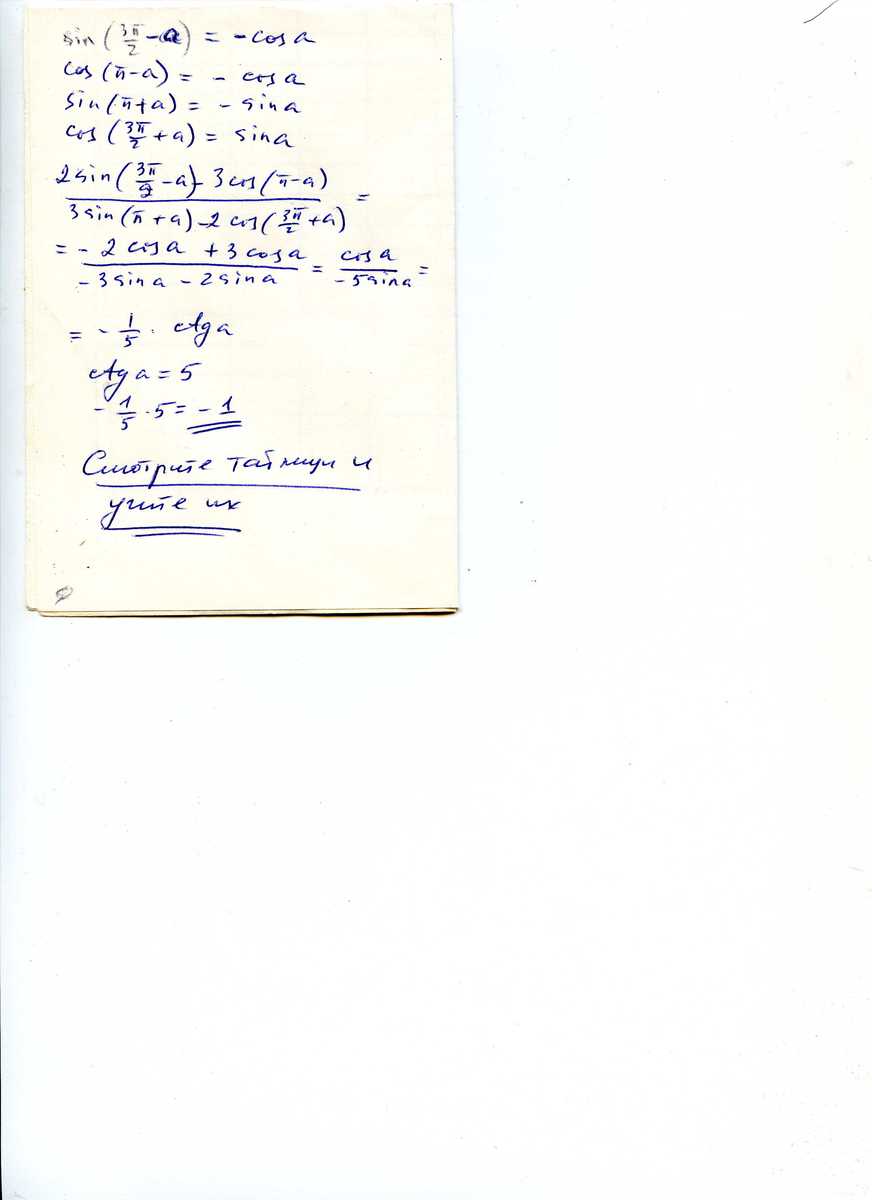 sin(3π/2 - a) = -cos a
cos(π-a) = - cos a
sin(π+a) = - sin a
cos(3π/2 + a) = sin a
2sin(3π/2 - a) - 3cos(π-a) / 3sin(π+a) - 2cos(3π/2 + a) =
= - 2cos a + 3cos a / - 3sin a - 2sin a = cos a / - 5sin a =
= - 1/5 · ctg a
ctg a = 5
- 1/5 · 5 = - 1
Смотрите таблици и
учите их